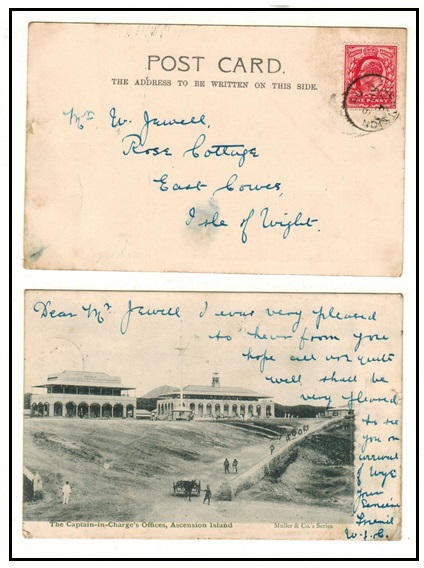 POST CARD.
THE ADDRESS TO BE WRITTEN ON THIS SIDE.
ONE PENNY
Mr W. Jewell,
Rose Cottage
East Cowes,
Isle of Wight.
Dear Mr Jewell I was very pleased
to hear from you
hope all are quite
well shall be
very pleased
to see
you on
arrival
of
your
Sincere
friend
W.J.C.
The Captain-in-Charge's Offices, Ascension Island
Muller & Co.'s Series